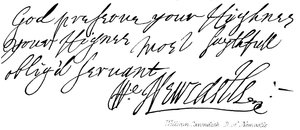 God preserve your Highnes
your Highnes most faythfull
oblig'd servant
W: Newcastle:-
William Cavendish D. of Newcastle